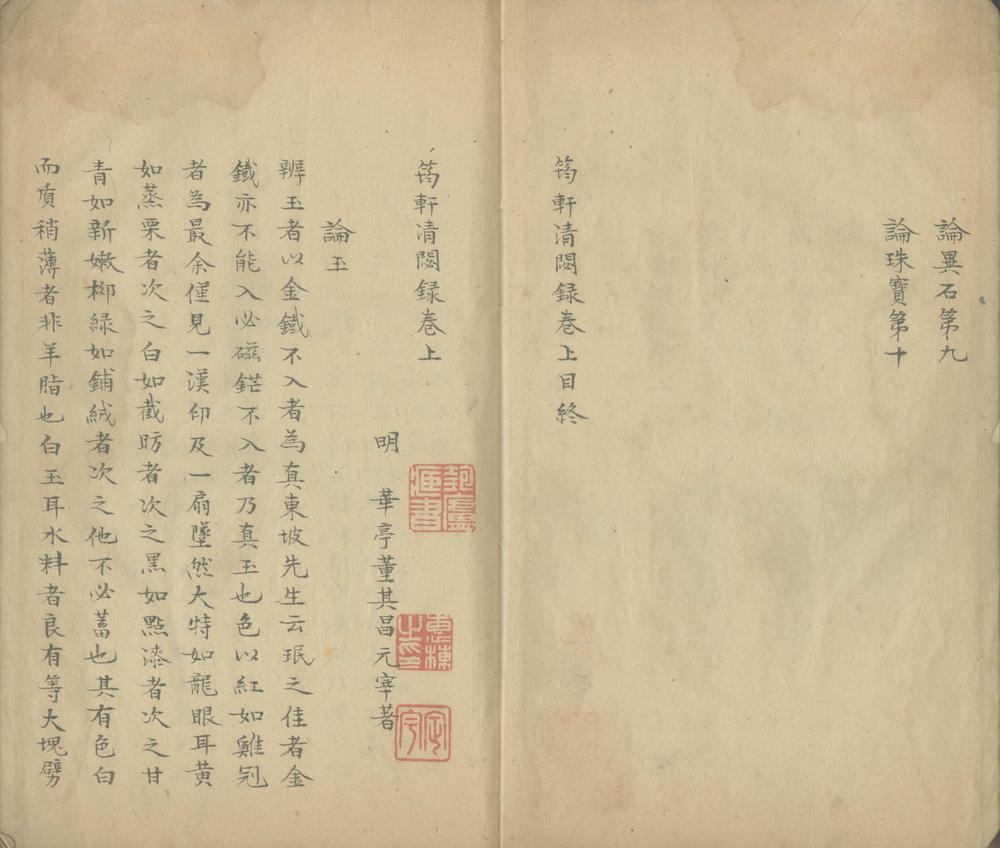 論異石第九
論珠寶第十
筠軒清閟録卷上目終
筠軒清閟録卷上
明 華亭董其昌元宰著
論玉
辨玉者以金鐵不入者為真東坡先生云珉之佳者金
鐵亦不能入必磁鋩不入者乃真玉也色以紅如雞冠
者為最余僅見一漢印及一扇墜然大特如龍眼耳黃
如蒸栗者次之白如截肪者次之黑如點漆者次之甘
青如新嫩柳緑如鋪絨者次之他不必蓄也其有色白
而质稍薄者非羊脂也白玉耳水料者良有等大塊劈
惠棟之印
定宇